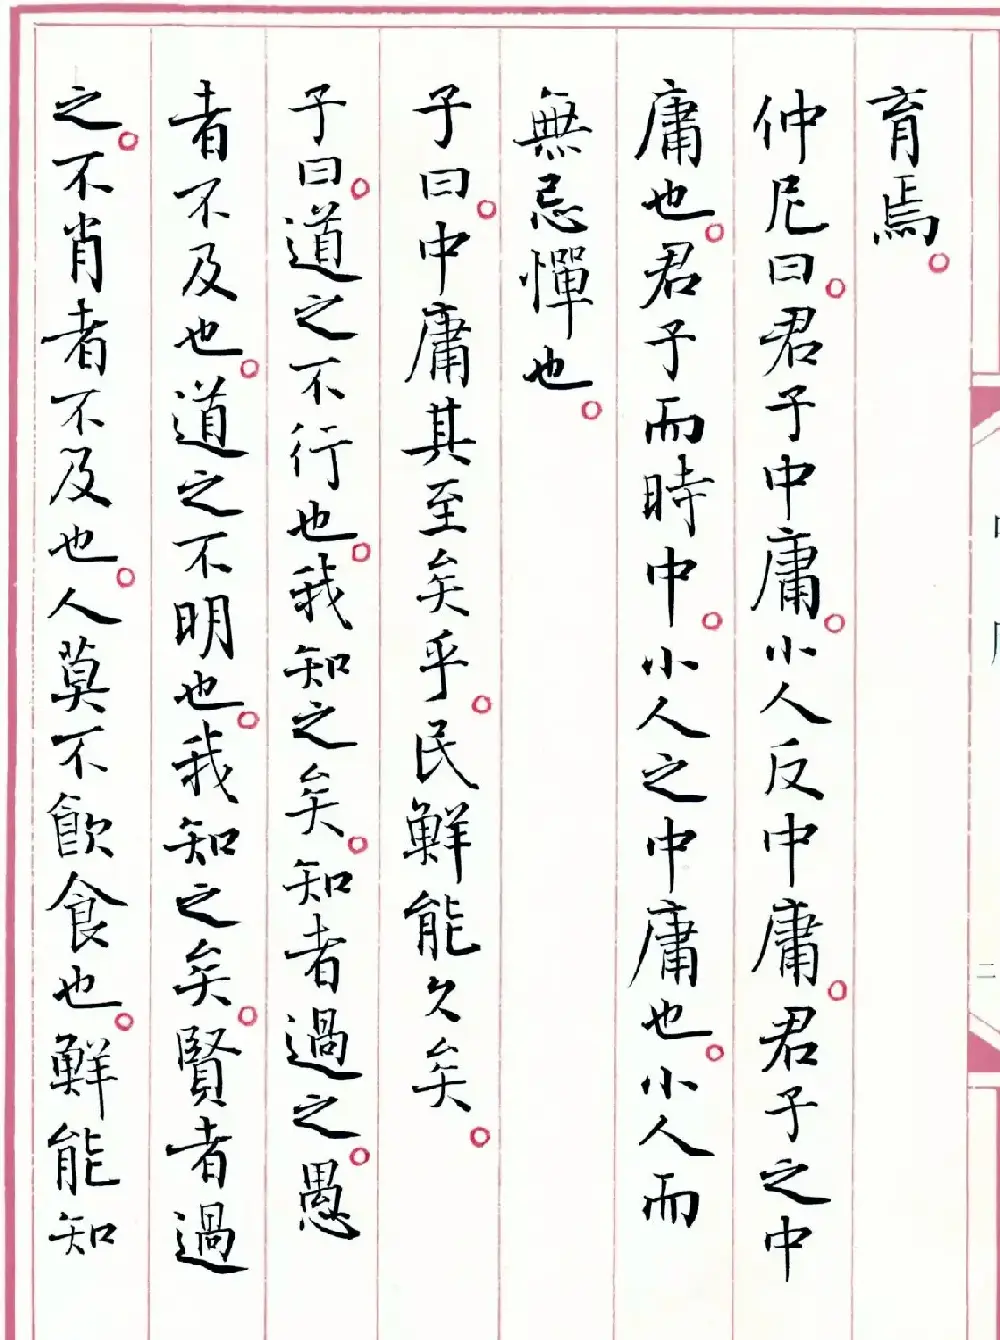 育焉。
仲尼曰。君子中庸。小人反中庸。君子之中
庸也。君子而時中。小人之中庸也。小人而
無忌憚也。
子曰。中庸其至矣乎。民鮮能久矣。
子曰。道之不行也。我知之矣。知者過之。愚
者不及也。道之不明也。我知之矣。賢者過
之。不肖者不及也。人莫不飲食也。鮮能知
二